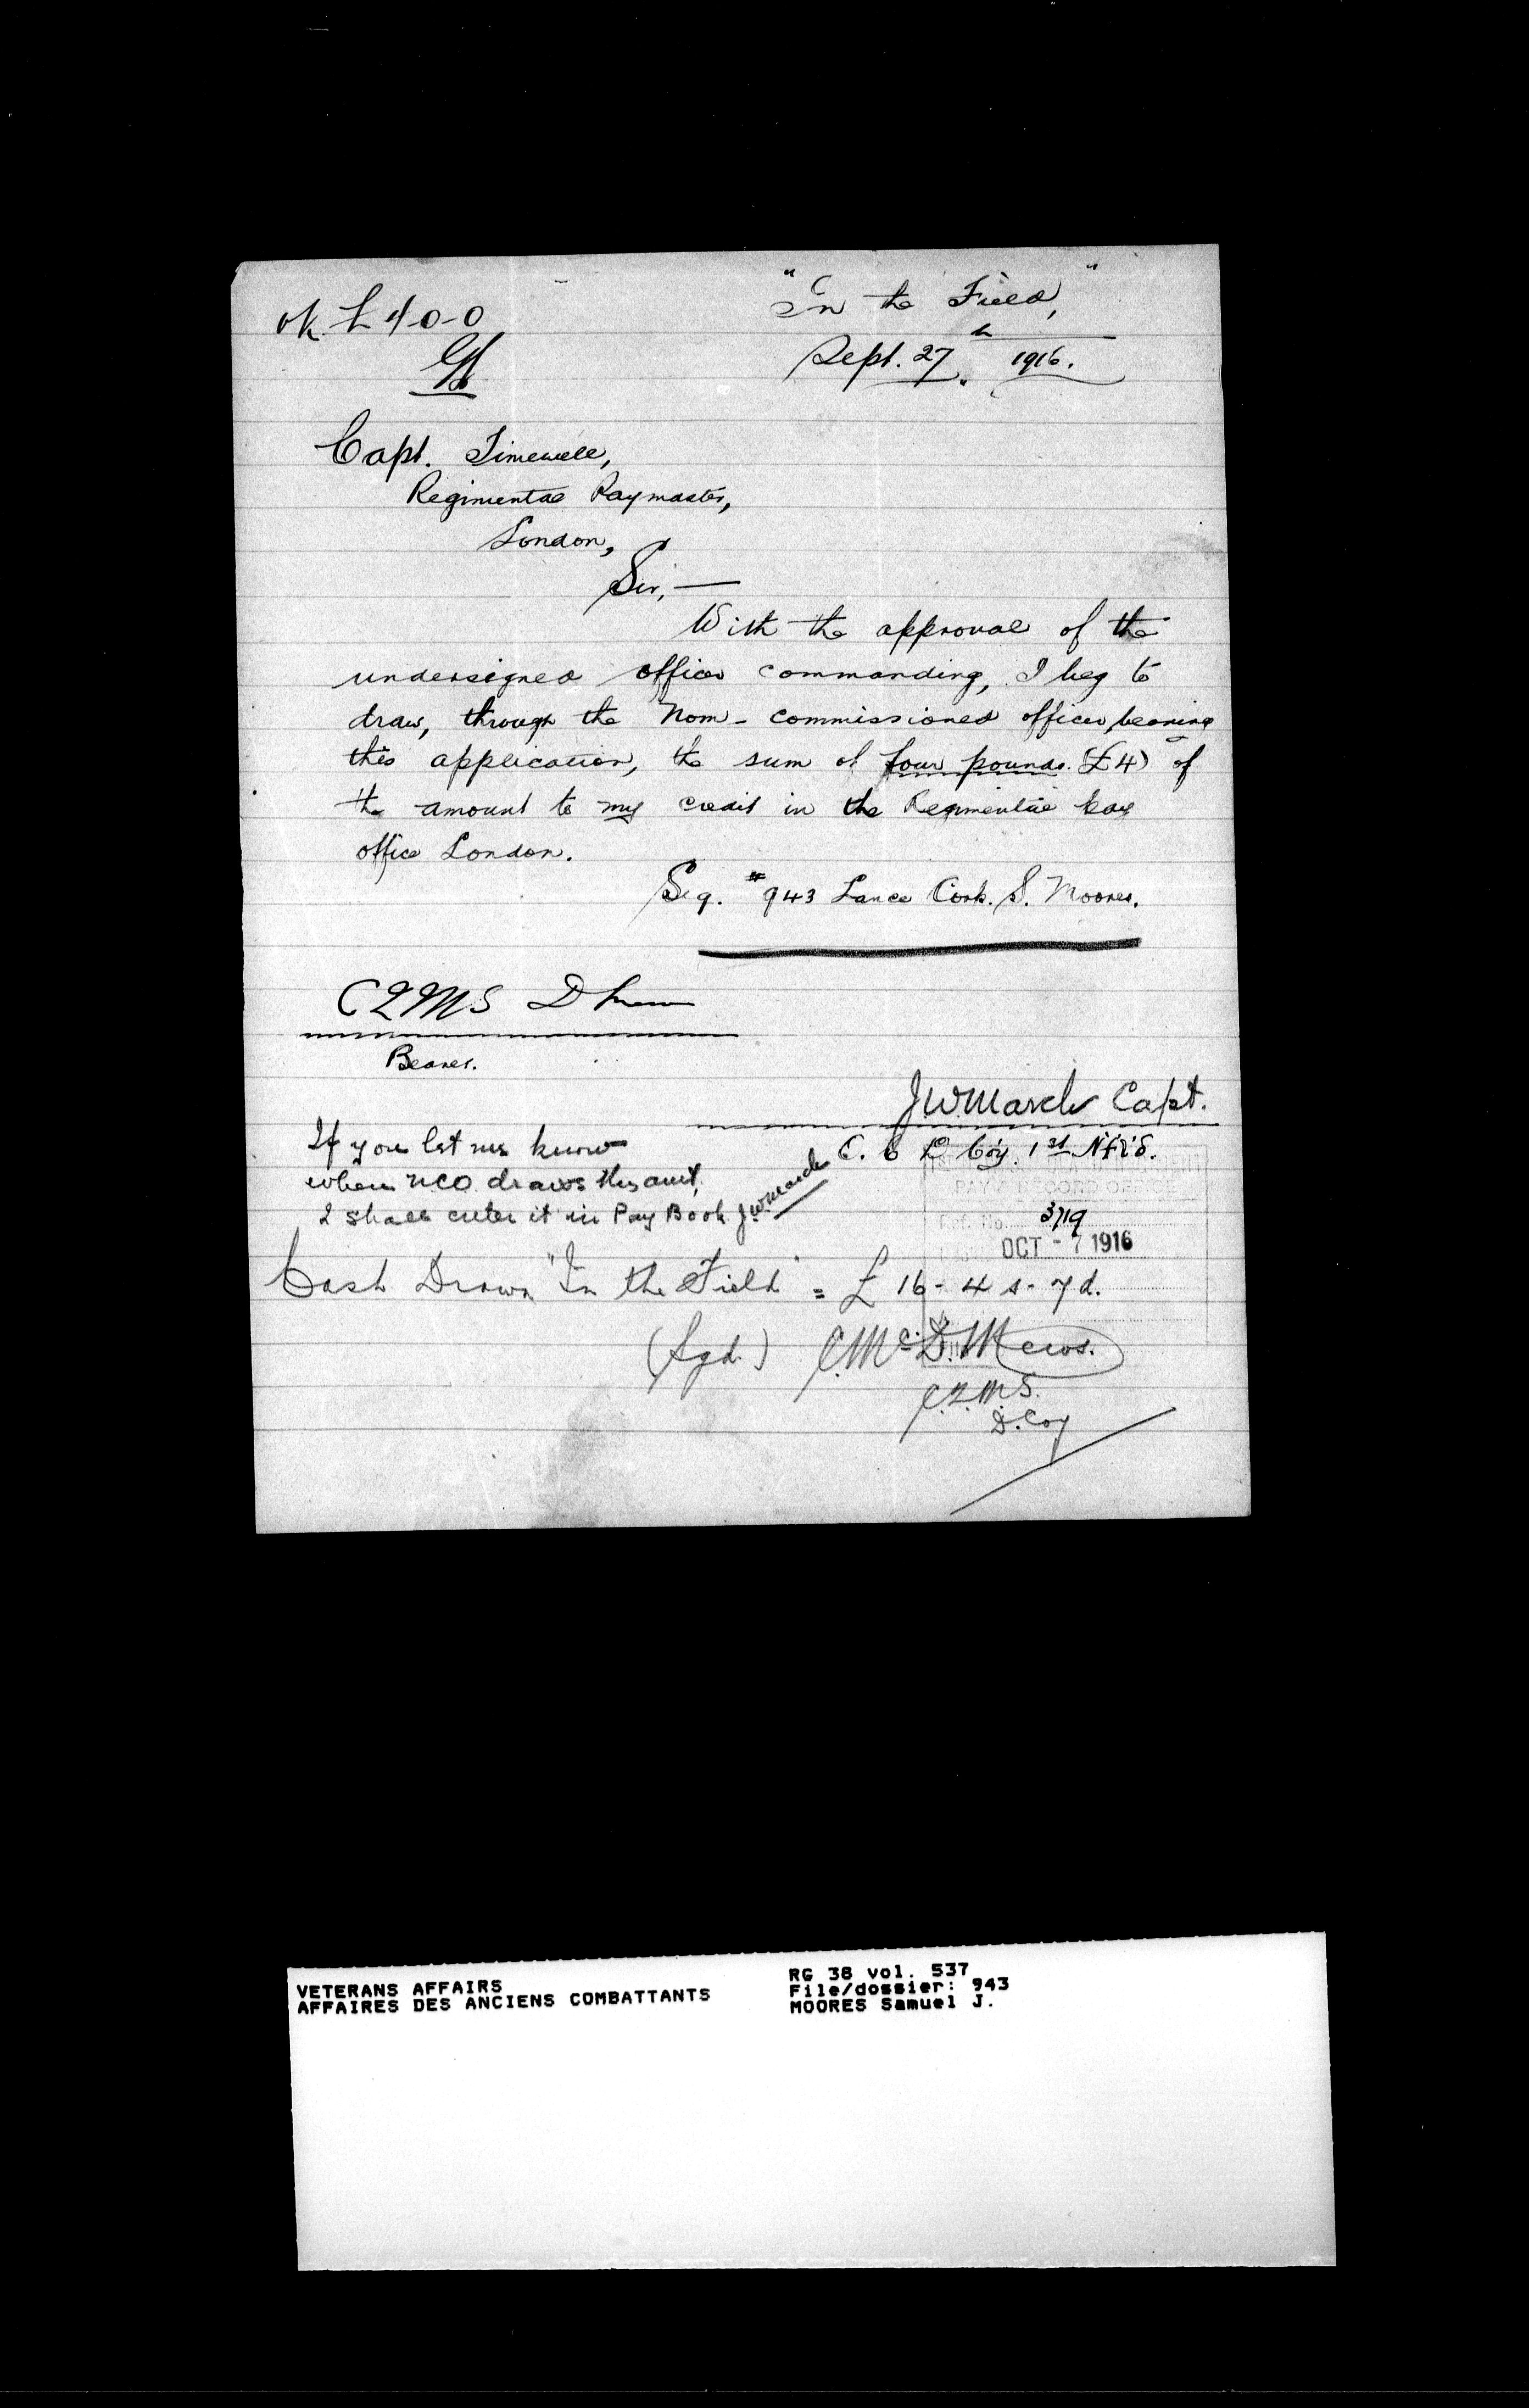 ok £ 4-0-0
"In the Field,"
Sept. 27th 1916.
Capt. Timewell,
Regimental Paymaster,
London,
Sir,—
With the approval of the
undersigned officer commanding, I beg to
draw, through the Nom-commissioned officer, bearing
this application, the sum of four pounds. (£4) of
the amount to my credit in the Regimental Pay
office London.
Sig. #943 Lance Corp. S. Moores.
CQMS D
Bearer.
J.W. March Capt.
O.C. D Coy. 1st Nfld.
If you let me know
when NCO draws this amt,
I shall enter it in Pay Book J.W. March
PAY & RECORD OFFICE
3719
OCT - 7 1916
Cash Drawn "In the Field" = £ 16 - 4 s - 7 d.
(Sgd.) C. Mc D. Mews.
C.Q.M.S.
D. Coy
VETERANS AFFAIRS
AFFAIRES DES ANCIENS COMBATTANTS
RG 38 vol. 537
File/dossier: 943
MOORES Samuel J.